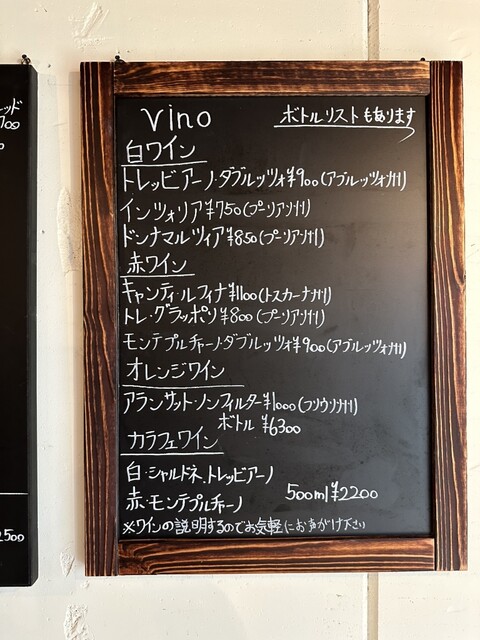 ッド
700
0
2500
vino
ボトルリストもあります
白ワイン
トレッビアーノ・ダブルッツォ¥900(アブルッツォ州)
インツォリア¥750(プーリア州)
ドンナマルツィア¥850(プーリア州)
赤ワイン
キャンティ・ルフィナ¥1100(トスカーナ州)
トレ・グラッポリ¥800(プーリア州)
モンテプルチャーノ・ダブルッツォ¥900(アブルッツォ州)
オレンジワイン
アランサット・ノンフィルター¥1000(フリウリ州)
ボトル ¥6300
カラフェワイン
白・シャルドネ、トレッビアーノ
赤・モンテプルチャーノ
500ml ¥2200
※ワインの説明するのでお気軽にお声がけ下さい